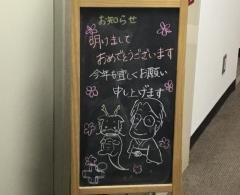 お知らせ
明けまして
おめでとうございます
今年も宜しくお願い
申し上げます